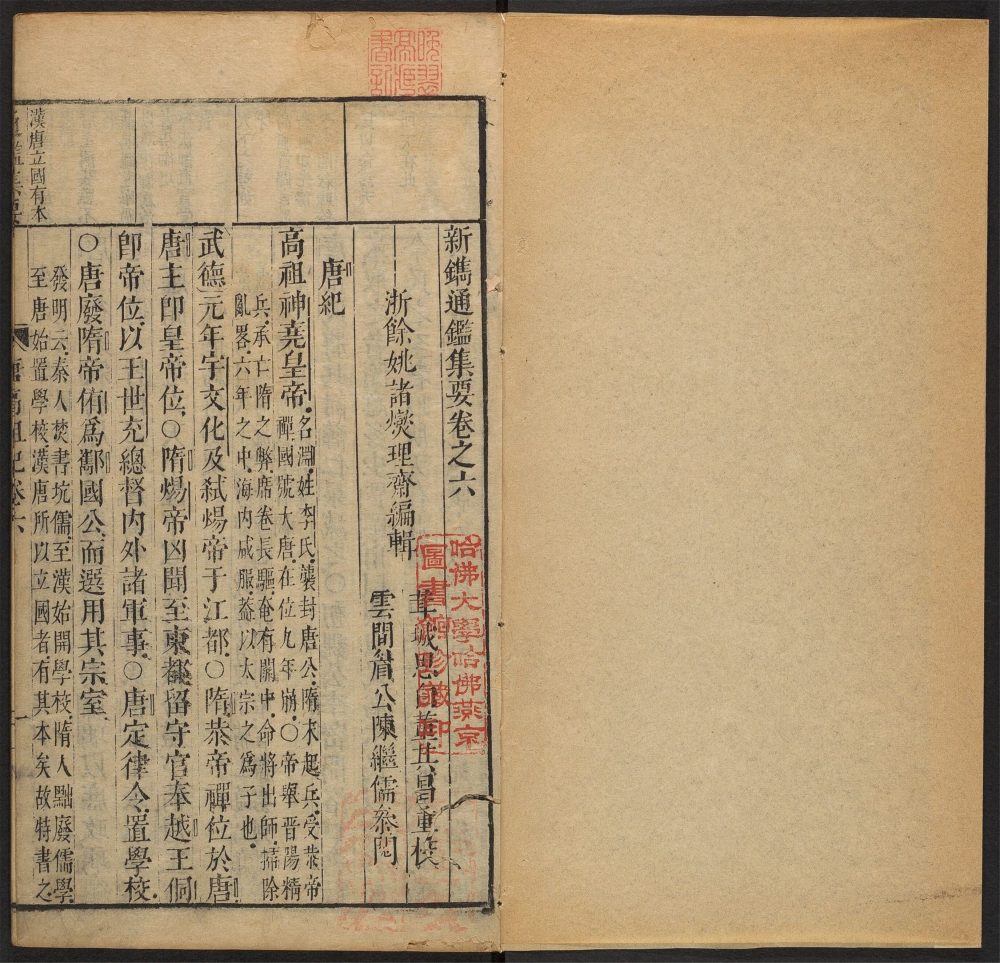 新鐫通鑑集要卷之六
浙餘姚諸燮理齋編輯
華 思 董其昌重校
雲間眉公陳繼儒叅閱
唐紀
高祖神堯皇帝名淵姓李氏襲封唐公隋末起兵受恭帝
禪國號大唐在位九年崩○帝舉晉陽精
兵承亡隋之弊席卷長驅奄有關中命將出師掃除
亂畧六年之中海内咸服葢以太宗之爲子也
武德元年宇文化及弑煬帝于江都○隋恭帝禪位於唐
唐主卽皇帝位○隋煬帝凶聞至東都留守官奉越王侗
卽帝位以王世充總督内外諸軍事○唐定律令置學校
○唐廢隋帝侑爲酅國公而選用其宗室
發明云秦人焚書坑儒至漢始開學校隋人黜廢儒學
至唐始置學校漢唐所以立國者有其本矣故特書之
漢唐立國有本
唐高祖紀卷六
哈佛大學哈佛燕京
圖書館珍藏印